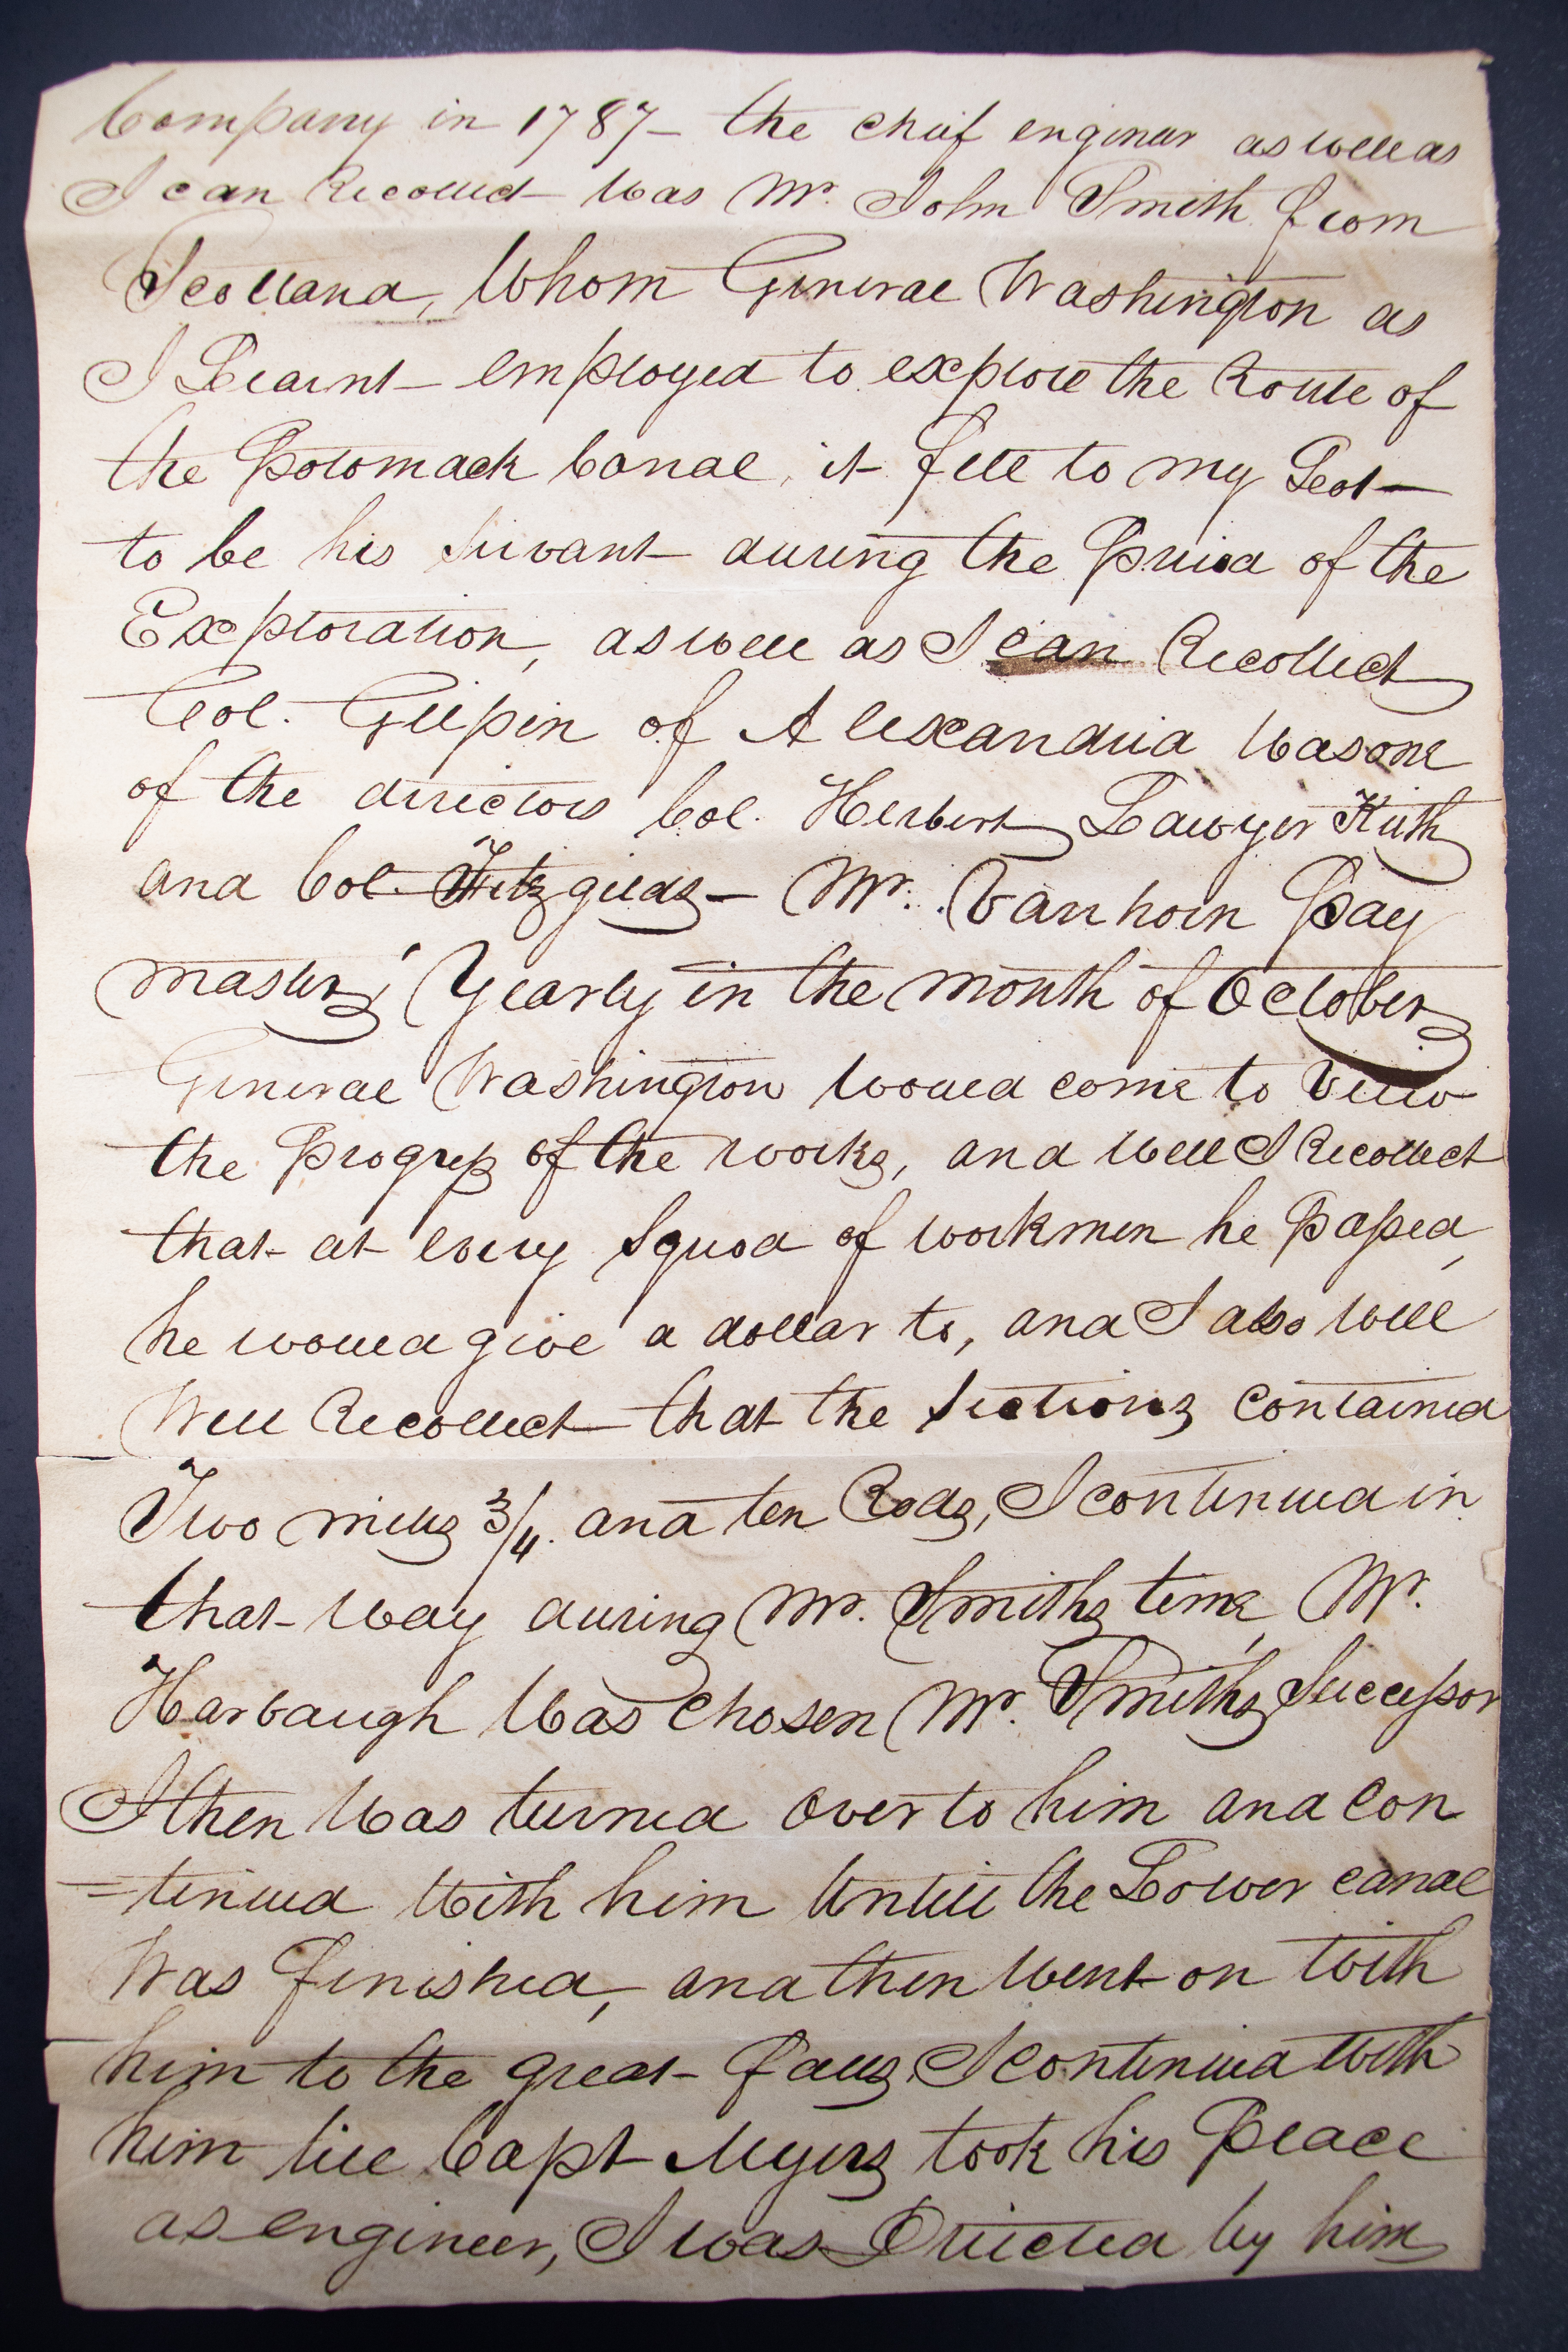 Company in 1787 — the chief enginer as well as
I can Recollect — was Mr. John Smith from
Scottland, Whom General Washington as
I Learnt — employed to explore the Route of
the Potomack Canal, it fell to my Leot —
to be his servant during the Priod of the
Exploration, as well as I can Recollect
Col. Gilpin of Alexandria was one
of the directors Col. Herbert Lawyer Kieth
and Col. Fitzgilds — Mr. Vanhorn Pay
master, Yearly in the month of October
General Washington would come to View
the Progress of the works, and well I Recollect
that at every squod of workmen he Passed,
he would give a dollar to, and I also well
Well Recollect that the sections contained
Two miles 3/4. and ten Rods, I continued in
that way during Mr. Smiths time, Mr.
Harbaugh Was chosen Mr. Smiths Successor
I then Was turned over to him and con
=tinued With him Untill the Lower canal
Was finished, and then went on With
him to the great falls, I continued With
him till Capt Myers took his Place
as engineer, I was Driected by him